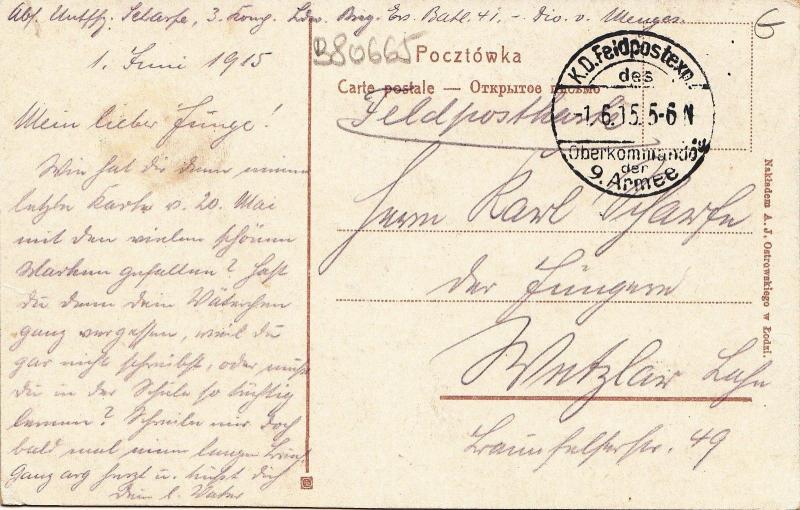 Abs. Untffz. Scharfe, 3. Komp. Ldw. Brig. Ers. Batl. 41, - Div. v. Menges.
1. Juni 1915
Mein lieber Junge!
Wie hat dir denn meine
letzte Karte v. 20. Mai
mit den vielen schönen
Marken gefallen? Hast
du denn dein Väterchen
ganz vergessen, weil du
gar nicht schreibst, oder mußt
du in der Schule so tüchtig
lernen? Schreibe mir doch
bald mal einen langen Brief.
Ganz arg herzt u. küßt dich
Dein l. Vater
380665
6
Pocztówka
Carte postale — Открытое письмо
Feldpostkarte
K.D. Feldpostexp.
des
-1.6.15. 5-6 N
Oberkommandos
der
9. Armee
Herrn Karl Scharfe
der Jüngere
Wetzlar Lahn
Braunfelserstr. 49
Nakładem A. J. Ostrowskiego w Łodzi.